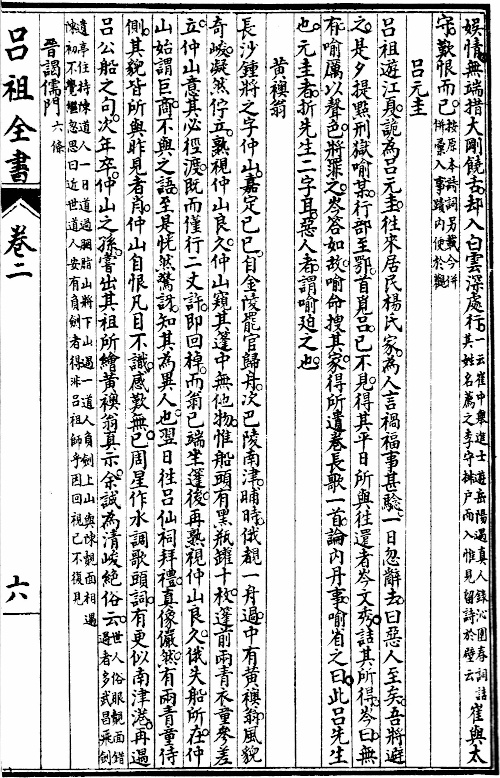 娱情無端措大剛饒舌却入白雲深處行一云崔中舉進士遊岳陽遇真人錄沁園春詞詰其姓名薦之李守排戶而入惟見留詩於壁云崔與太
守歎恨而已按原本詩詞另載今并併彙入事蹟内便於觀
呂元圭
呂祖遊江夏詭為呂元圭往來居民楊氏家為人言禍福事甚驗一日忽辭去曰惡人至矣吾將避
之是夕提點刑獄喻某行部至鄂首覓呂已不見得其平日所與往還者岑文秀詰其所得岑曰無
有喻厲以聲色將罪之岑答如故喻命搜其家得所遺長歌一首論内丹事喻省之曰此呂先生
也元圭者拆先生二字耳惡人者謂喻廹之也
黄襖翁
長沙鍾將之字仲山嘉定已已自金陵罷官歸舟次巴陵南津晡時俄覩一舟過中有黄襖翁風貌
奇峻凝然佇立熟視仲山良久仲山窺其篷中無他物惟船頭有黑瓶罐十枚篷前兩青衣童參差
立仲山意其必徑渡既而僅行二丈許即回棹而翁已端坐篷後再熟視仲山良久俄失船所在仲
山始謂巨商不與之語至是恍然驚訝知其為異人也翌日往呂仙祠拜禮真像儼然有兩青童侍
側其貌皆所與昨見者肖仲山自恨凡目不識感歎無已周星作水調歌頭詞有更似南津港再過
呂公船之句次年卒仲山之孫嘗出其祖所繪黄襖翁真示余誠為清峻絶俗云世人俗眼覿面錯過者多武昌乘劍
遺事住持陳道人一日道過胭脂山將下山遇一道人負劍上山與陳覿面相遇
陳初不覺繼忽思曰近世道人安有負劍者得非呂祖師乎因回視已不復見
晉謁儒門六條
呂祖全書
卷二
六